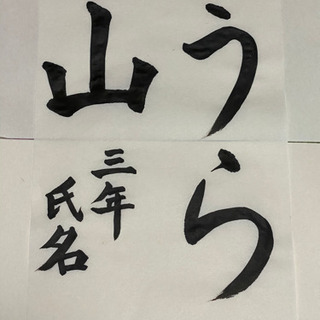 うら
山
三年
氏名